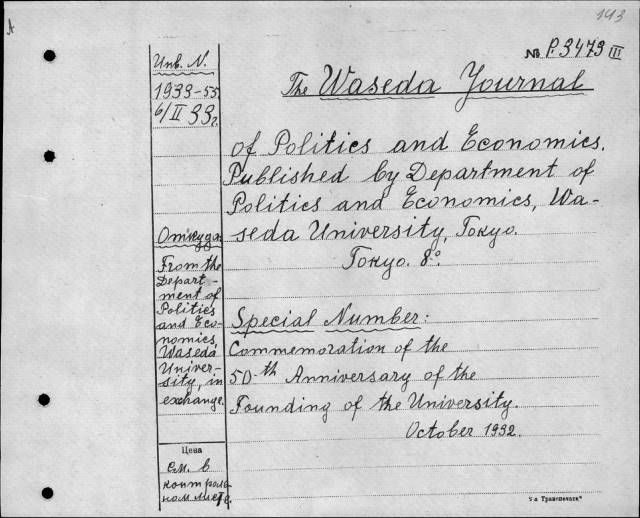 A
143
№ P.3473 III
Инв. N.
1933-55
6/II 33г.
Откуда
From the
Depart-
ment of
Politics
and Eco-
nomics,
Waseda
Univer-
sity, in
exchange.
Цена
см. в
контроль-
ном листе.
The Waseda Journal
of Politics and Economics.
Published by Department of
Politics and Economics, Wa-
seda University, Tokyo.
Tokyo. 8°.
Special Number:
Commemoration of the
50-th Anniversary of the
Founding of the University.
October 1932.
"Транспечати"